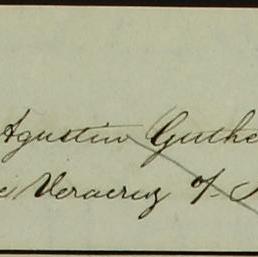 Agustin Guthe
e Veracruz